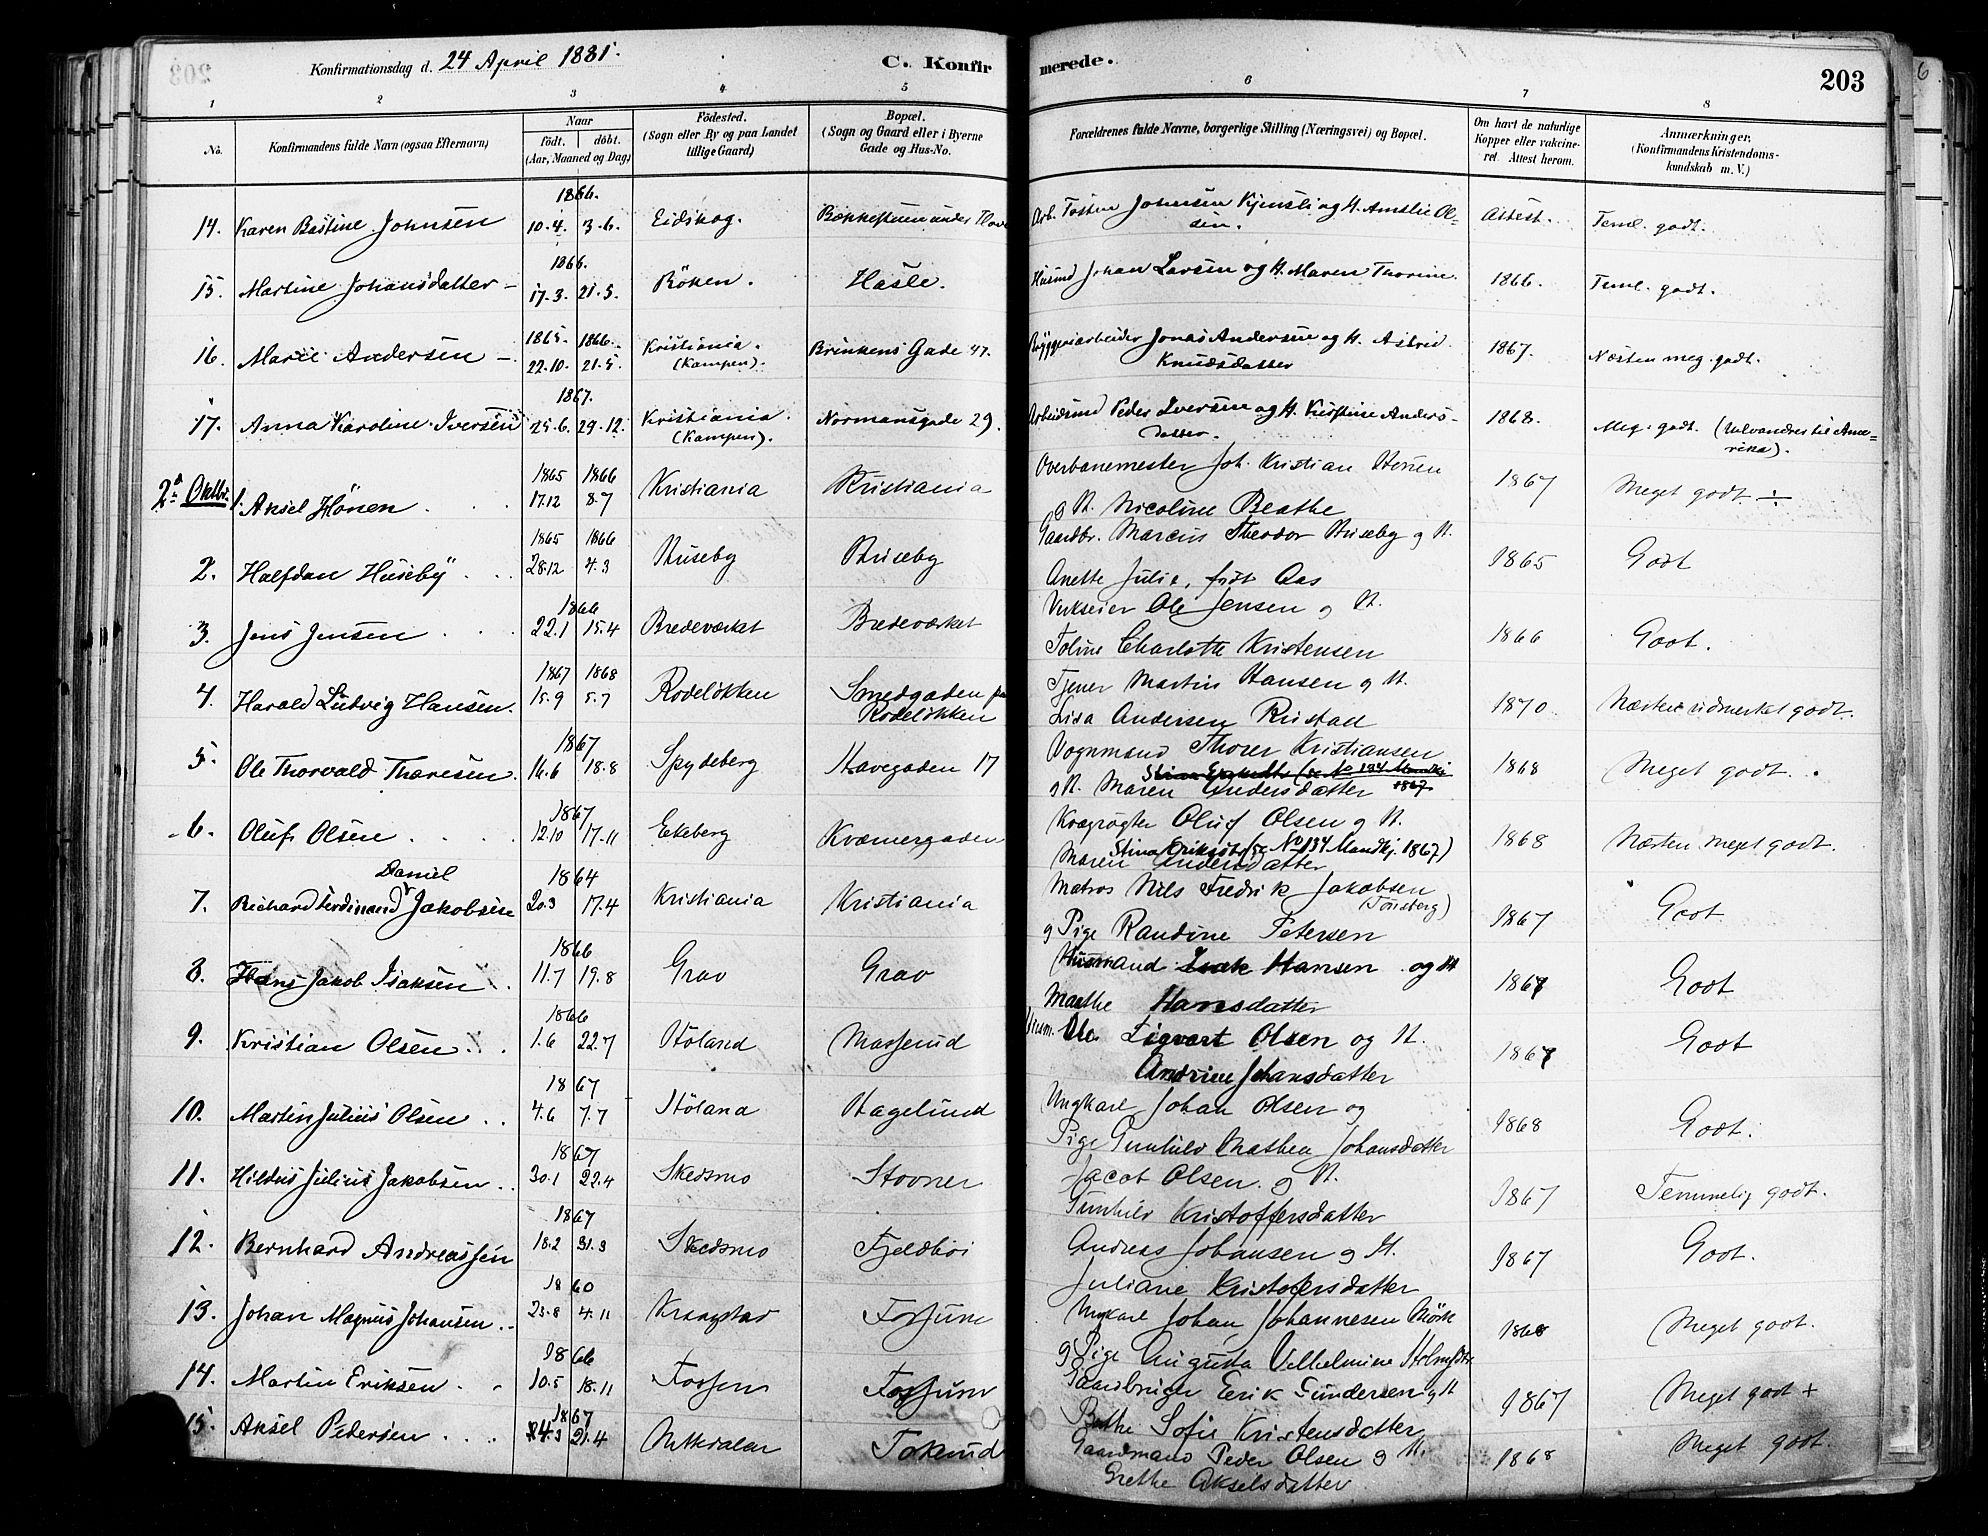 Konfirmationsdag d. 24 April 1881.
C. Konfirmerede.
203
6
1 2 3 4 5 6 7 8
No.
Konfirmandens fulde Navn (ogsaa Efternavn)
Naar
født. døbt.
(Aar, Maaned og Dag)
Fødested.
(Sogn eller By og paa Landet
tillige Gaard)
Bopæl.
(Sogn og Gaard eller i Byerne
Gade og Hus-No.
Forældrenes fulde Navne, borgerlige Stilling (Næringsvei) og Bopæl.
Om havt de naturlige
Kopper eller vakcine-
ret. Attest herom.
Anmærkninger,
(Konfirmandens Kristendoms-
kundskab m. V.)
1866.
14. Karen Bastine Johnsen 10.4. 3.6. Eidskog. Arb. Tosten Johnsen og H. Amalie Ol-
sen. Attest. Teml. godt.
1866.
15. Martine Johansdatter 17.3. 21.5. Röken. Hasle. Husmd Johan Larsen og H. Maren Thorine. 1866. Teml. godt.
1865. 1866.
16. Marie Andersen 22.10. 21.5. Kristiania.
(Kampen). Brinkens Gade 47. Bryggeriarbeider Jonas Andersen og H. Astrid
Knudsdatter 1867. Næsten meg. godt.
1867.
17. Anna Karoline Iversen 25.6. 29.12. Kristiania.
(Kampen). Normansgade 29. Arbeidsmd Peder Iversen og H. Kirstine Anders-
datter. 1868. Meg. godt. (Udvandrer til Ame-
rika).
2d Oktbr.
1865 1866
1. Aksel Hönen 17.12 8.7 Kristiania Kristiania Overbanemester Joh. Kristian Hönen
g H. Nicoline Beathe 1867 Meget godt ÷
1865 1866
2. Halfdan Huseby 28.12 4.3 Huseby Huseby Gaardbr. Marcus Theodor Huseby g H.
Anette Julie, født Aas 1865 Godt
1866
3. Jens Jensen 22.1 15.4 Bredeværket Bredeværket Verkseier Ole Jensen g H.
Toline Charlotte Kristensen 1866 Godt.
1867 1868
4. Harald Ludvig Hansen. 15.9 5.7 Rodelökken Smedgaden paa
Rodelökken Tjener Martin Hansen g H.
Lisa Andersen Rustad 1870 Næsten udmerket godt.
1867
5. Ole Thorvald Thoresen. 16.6 18.8 Spydeberg Havegaden 17 Vognmand Thorer Kristiansen
g H. Maren Andersdatter 1868 Meget godt.
1867
6. Oluf Olsen 12.10 17.11 Ekeberg Kværnergaden Kvægrögter Oluf Olsen g H.
Stina Eriksdtr (se No 134 Mandkj. 1867)
Maren Andersdatter 1868 Næsten meget godt.
Daniel 1864
7. Richard Ferdinand Jakobsen 20.3 17.4 Kristiania Kristiania Matros Nils Fredrik Jakobsen
(Tönsberg)
g Pige Randine Petersen 1867 Godt
1866
8. Hans Jakob Isaksen 11.7 19.8 Grav Grav Husmand Isak Hansen og H
Marthe Hansdatter 1867 Godt
1866
9. Kristian Olsen 1.6 22.7 Höland Masserud Husm. Ole Sigvart Olsen og H.
Andrine Johansdatter 1867 Godt
1867
10. Martin Julius Olsen 4.6 7.7 Höland Hagelund Ungkarl Johan Olsen og
Pige Gunhild Mathea Johansdatter 1868 Godt.
1867
11. Hildus Julius Jakobsen 30.1 22.4 Skedsmo Stovner Jacob Olsen g H.
Gunhild Kristoffersdatter 1867 Temmelig godt.
1867
12. Bernhard Andreassen 18.2 31.3 Skedsmo Fjeldböi Andreas Johansen g H.
Juliane Kristofersdatter 1867 Godt.
1860
13. Johan Magnus Johansen 23.8 4.11 Kraagstad Fossum Ungkarl Johan Johannesen Mörk
g Pige Augusta Vilhelmine 1868 Meget godt.
1866
14. Martin Eriksen 10.5 18.11 Fossum Fossum Gaardbruger Eerik Gundersen g H
Berthe Sofie Kristensdatter 1867 Meget godt +
1867
15. Aksel Pedersen 21.4 Nitedalen Tokerud Gaardmand Peder Olsen g H.
Grethe Akselsdatter 1868 Meget godt.